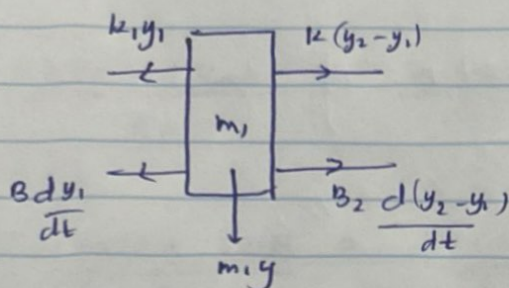 k₁y₁
k(y₂-y₁)
m₁
B dy₁/dt
B₂ d(y₂-y₁)/dt
m₁y